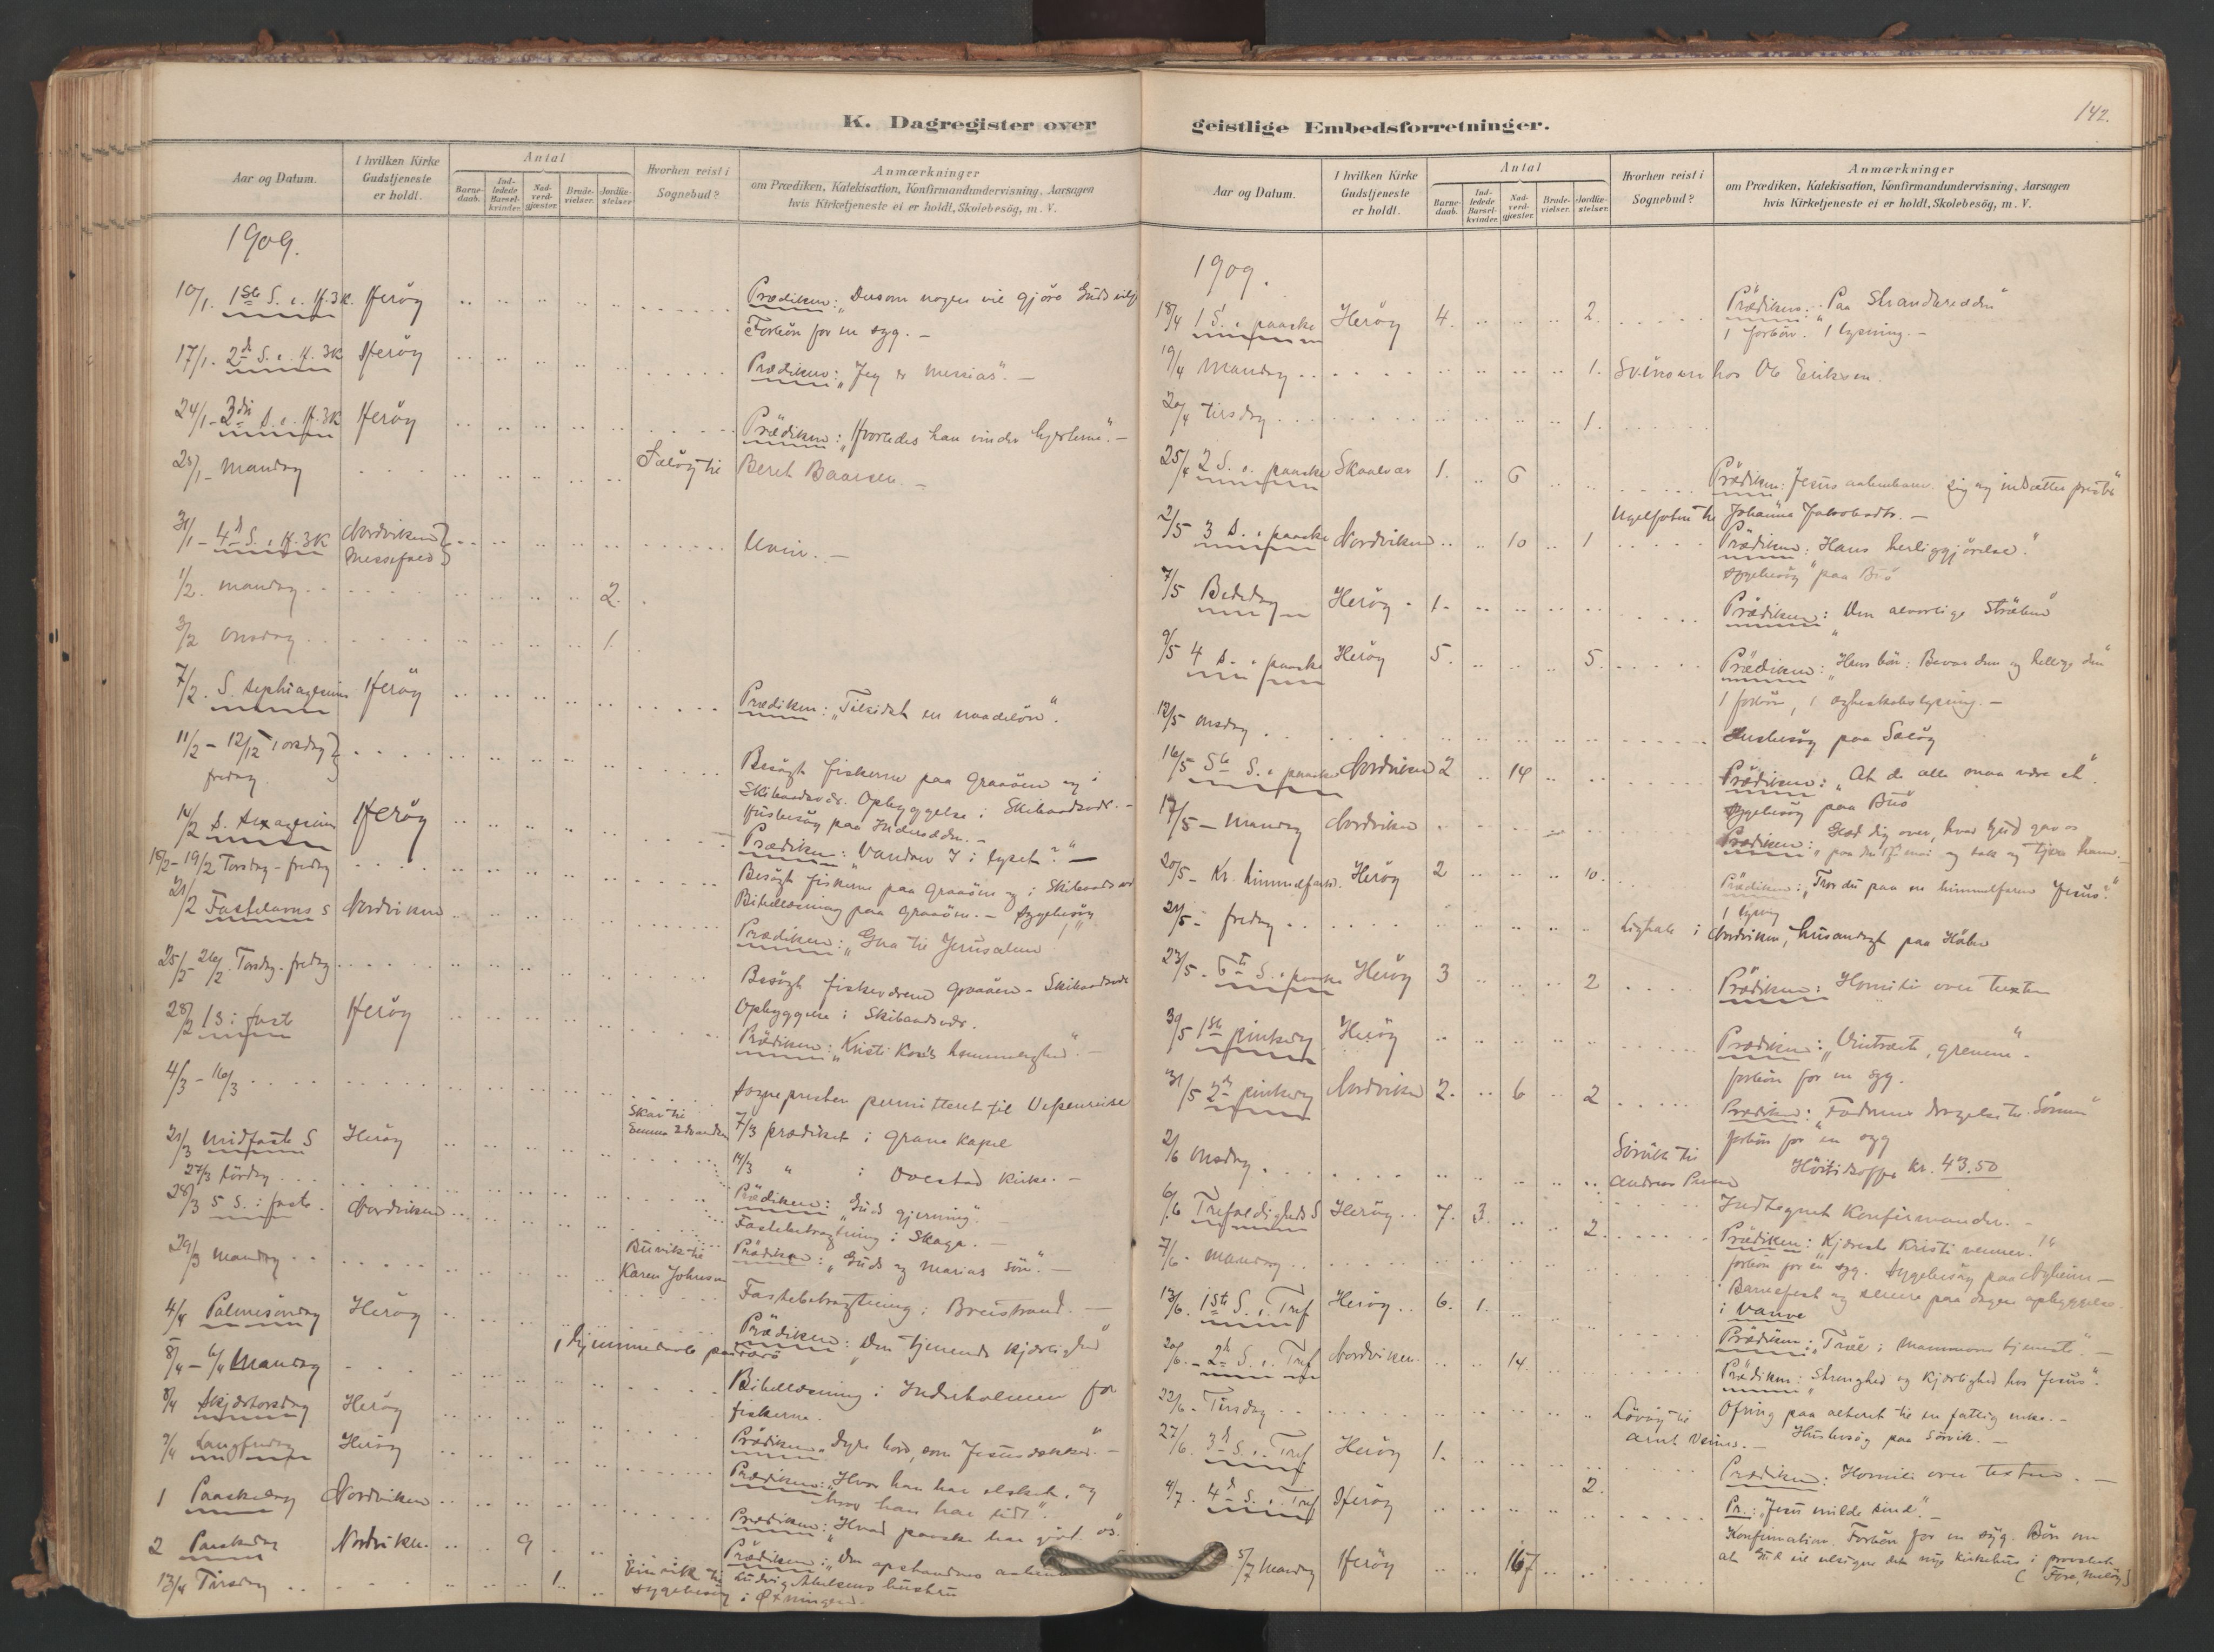 K. Dagregister over
Aar og Datum.
I hvilken Kirke Gudstjeneste er holdt.
Antal
Barne-daab.
Ind-ledede Barsel-kvinder.
Nad-verd-gjæster.
Brude-vielser.
Jordfæ-stelser.
Hvorhen reist i Sognebud?
Anmærkninger
om Prædiken, Katekisation, Konfirmandundervisning, Aarsagen
hvis Kirketjeneste ei er holdt, Skolebesøg, m. V.
1909.
10/1. 1ste S. e. H.3K. Herøy Prædiken: "Dersom nogen vil gjøre Guds vilje
Forbøn for en syg. -
17/1. 2d S. e. H. 3K Herøy Prædiken: "Jeg er Messias". -
24/1 - 3die S. e. H. 3K Herøy Prædiken: "Hvorledes han vinder hjerterne". -
25/1 - Mandag til Beret Baarsen. -
31/1 - 4d S. e. H. 3K Nordviken Messefald Uveir. -
1/2. Mandag 2.
3/2 Onsdag 1.
7/2. S. Septuagesima Herøy Prædiken: "Tilsidst en naadeløn".
11/2 - 12/12 Torsdag fredag Besøgt fiskerne paa Graaøen og i
Skibaadsvær. Opbyggelse i Skibaadsvær. -
Husbesøg paa
14/2 S. Sexagesima Herøy Prædiken: "Vandrer I i lyset?" -
18/2 - 19/2 Torsdag - fredag Besøgt fiskerne paa Graaøen og i Skibaadsvær
Bibellæsning paa Graaøen. - Sygebesøg
21/2 Fastelavns S Nordviken Prædiken: "Gaa til Jerusalem!"
25/2 - 26/2. Torsdag - fredag Besøgt fiskeværene Graaøen - Skibaadsvær
Opbyggelse i Skibaadsvær.
28/2 1 S i faste Herøy Prædiken: "Kristi Kors's hemmelighed". -
4/3 - 16/3 Sognepresten permitteret til Vefsenreise
7/3 prædiket i Grane Kapel
14/3 " i Kirke. -
21/3 Midfaste S Herøy til Emma Prædiken: "Guds gjerning".
27/3 Lørdag Fastebetragtning i Skaga. -
28/3 5 S. i faste. Nordviken Prædiken: "Guds og Marias Søn". -
29/3 Mandag til Karen Johnsen Fastebetragtning i Breistrand. -
4/4 Palmesøndag Herøy Prædiken: "Den tjenende kjærlighed"
5/4 - 6/4 Mandag 1 hjemmedaab paa Bibellæsning i Inderholmen for
fiskerne.
8/4 Skjærtorsdag Herøy Prædiken "Dyre bord, som Jesus dækker". -
9/4 Langfredag Herøy Prædiken: "Hvor han har elsket, og
hvor han har lidt".
1 Paaskedag Nordviken Prædiken: "Hvad paaske har gjort os".
2 Paaskedag Nordviken. 9 Prædiken: "Den opstandnes
13/4 Tirsdag 1. til Ludvig hustru
Sygebesøg i
geistlige Embedsforretninger.
142.
Aar og Datum.
I hvilken Kirke Gudstjeneste er holdt.
Antal
Barne-daab.
Ind-ledede Barsel-kvinder.
Nad-verd-gjæster.
Brude-vielser.
Jordfæ-stelser.
Hvorhen reist i Sognebud?
Anmærkninger
om Prædiken, Katekisation, Konfirmandundervisning, Aarsagen
hvis Kirketjeneste ei er holdt, Skolebesøg, m. V.
1909.
18/4 1 S. e. paaske Herøy 4. 2. Prædiken: "Paa Strandbredden"
1 forbøn. 1 lysning. -
19/4 Mandag 1. hos Ole Eriksen.
20/4 Tirsdag 1.
25/4 2 S. e. paaske Skaalvær 1. 6 Prædiken: Jesus aabenbarer sig og indsætter
til Johanna Jakobsdtr. -
2/5 3 S. e. paaske Nordviken 10 1 Prædiken: "Hans herliggjørelse."
Sygebesøg paa
7/5 Bededag Herøy. 1. Prædiken: "Den alvorlige stræben"
9/5 4 S. e. paaske Herøy 5. 5. Prædiken: "Hans bøn: Bevar dem og hellige dem"
1 forbøn, 1 ægteskabslysning. -
12/5 Onsdag Husbesøg paa
16/5 5te S. e. paaske Nordviken 2 14 Prædiken: "At de alle maa være et".
Sygebesøg paa
17/5 - Mandag Nordviken Prædiken: "Glæd dig over, hvad Gud gav os
paa den 17 mai og tak og tjen ham.
20/5 - Kr. himmelfartsd. Herøy 2 10. Prædiken: "Tror du paa en himmelfaren Jesus?"
1 lysning
21/5 - fredag Ligtale i Nordviken, husandagt paa
23/5 - 6te S. e. paaske Herøy 3 2 Prædiken: Homili over texten
30/5 1ste pinsedag Herøy Prædiken: "Vintræet, grenene". -
forbøn for en syg.
31/5 2den pinsedag Nordviken 2. 6 2 Prædiken: "Faderens dragelse til Sønnen"
forbøn for en syg
2/6 Onsdag til Andreas Høitidsoffer kr. 43.50
6/6 Trefoldigheds S Herøy 7. 3. 2. Indtegnet Konfirmander. -
Prædiken: "Kjæreste Kristi venner."
7/6. Mandag forbøn for en syg. Sygebesøg paa -
13/6. 1ste S. e. Tref Herøy 6. 1. Barnefest og senere paa dagen opbyggelse
i
Prædiken: "Træl i Mammons tjeneste". -
20/6. - 2d S. e. Tref Nordviken. 14. Prædiken: "Strenghed og kjærlighed hos Jesus".
22/6 - Tirsdag til Ofring paa alteret til en fattig enke. -
Husbesøg paa Sørvik. -
27/6. 3d S. e. Tref Herøy 1. Prædiken: Homili over texten. -
4/7. 4d S. e. Tref Herøy 2. Pr.: "Jesu milde sind". -
5/7 Mandag Herøy 167 Konfirmation. Forbøn for en syg. Bøn om
at Gud vil velsigne det nye kirkehus i provstiet